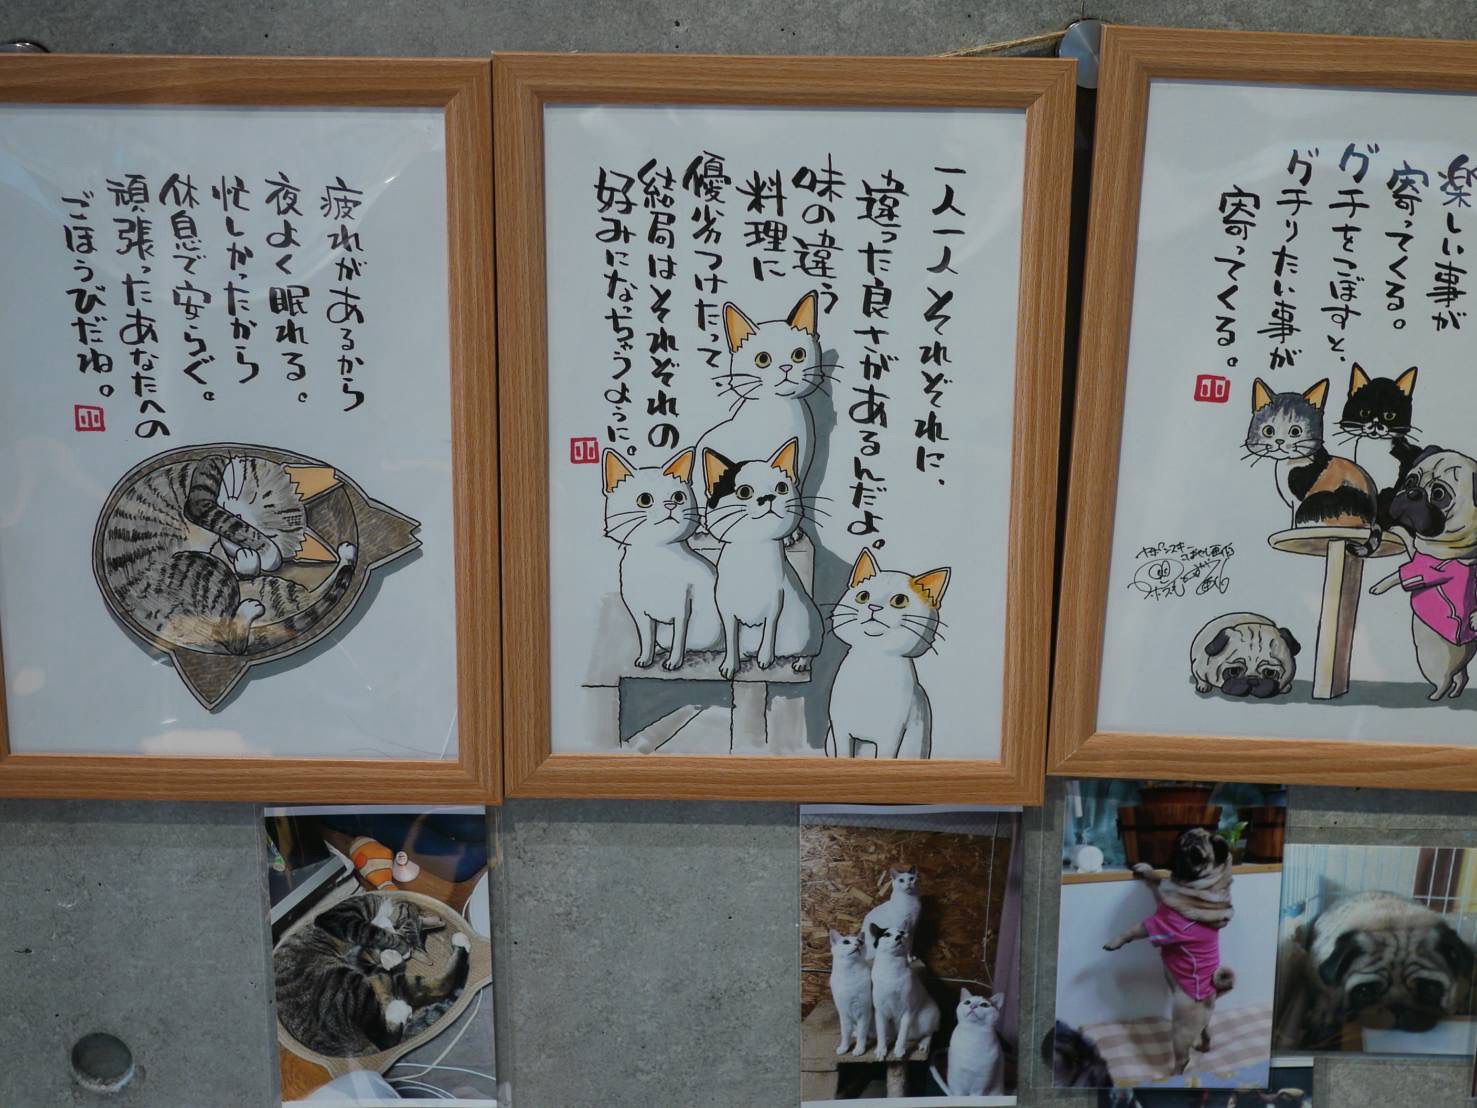 疲れがあるから
夜よく眠れる。
忙しかったから
休息で安らぐ。
頑張ったあなたへの
ごほうびだね。
一人一人それぞれに、
違った良さがあるんだよ。
味の違う
料理に
優劣つけたって、
結局はそれぞれの
好みになっちゃうように。
楽しい事が
寄ってくる。
グチをこぼすと、
グチりたい事が
寄ってくる。